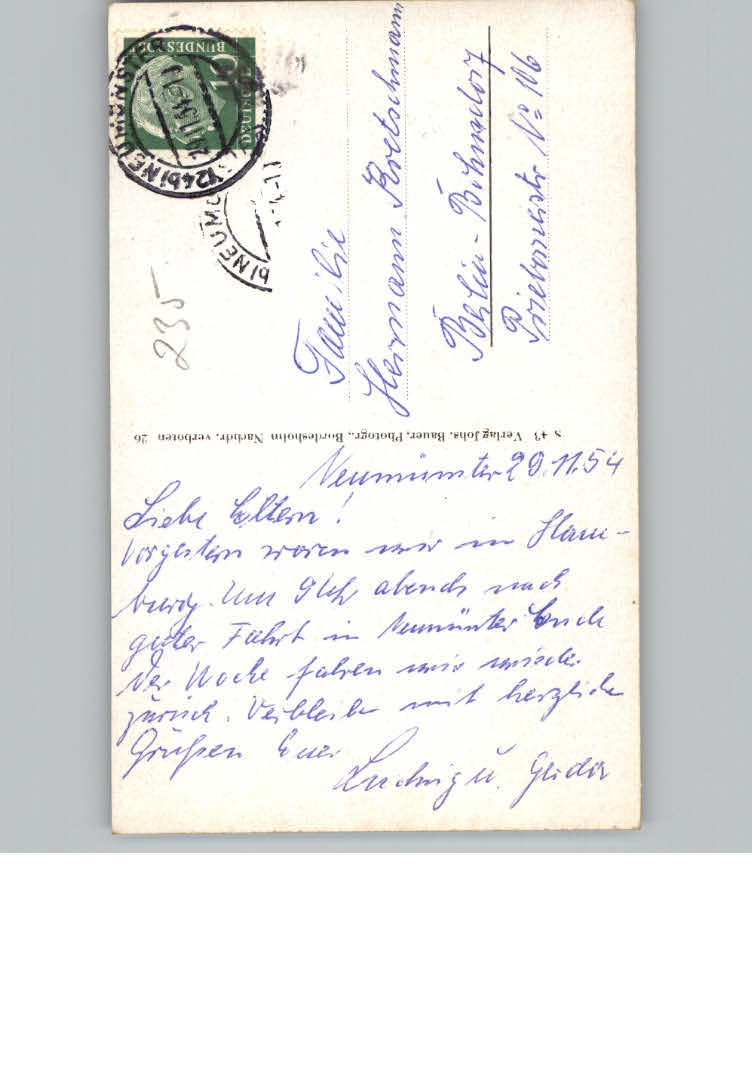 Neumünster 29.11.54
Liebe Eltern!
Vorgestern waren wir in Ham-
burg. Um 9 Uhr abends nach
guter Fahrt in Neumünster Ende
der Woche fahren wir wieder
zurück. Verbleibe mit herzliche
Grüßen Euer
Ludwig u. Gerda
S 43 Verlag Johs. Bauer, Photogr., Bordesholm Nachdr. verboten 26
Familie
Hermann Kretschmann
Berlin-Bohnsdorf
Nº 106
235
DEUTSCHE
BUNDESPOST
10